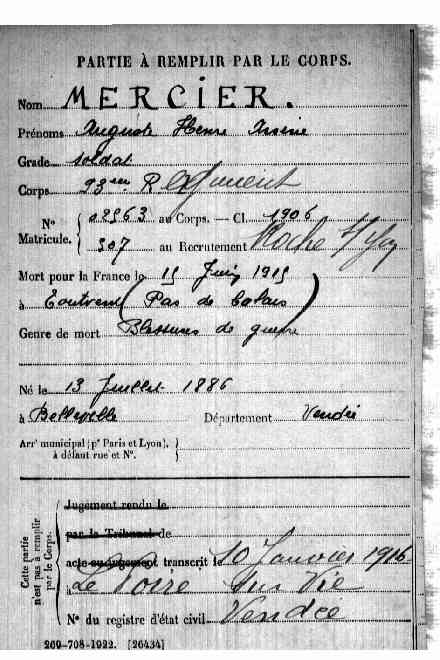 PARTIE À REMPLIR PAR LE CORPS.
Nom MERCIER.
Prénoms Auguste Henri Arsène
Grade soldat
Corps 93ème Régiment
Nº Matricule. { 02963 au Corps. — Cl. 1906
307 au Recrutement Roche s/Yon
Mort pour la France le 15 Juin 1915
à (Pas de Calais)
Genre de mort Blessures de guerre
Né le 13 Juillet 1886
à Belleville Département Vendée
Arrᵗ municipal (pʳ Paris et Lyon),
à défaut rue et Nº.
Cette partie n'est pas à remplir par le Corps.
Jugement rendu le
par le Tribunal de
acte ou jugement transcrit le 10 Janvier 1916
à Le Poiré sur Vie
Nº du registre d'état civil Vendée
269-708-1922. [26434]